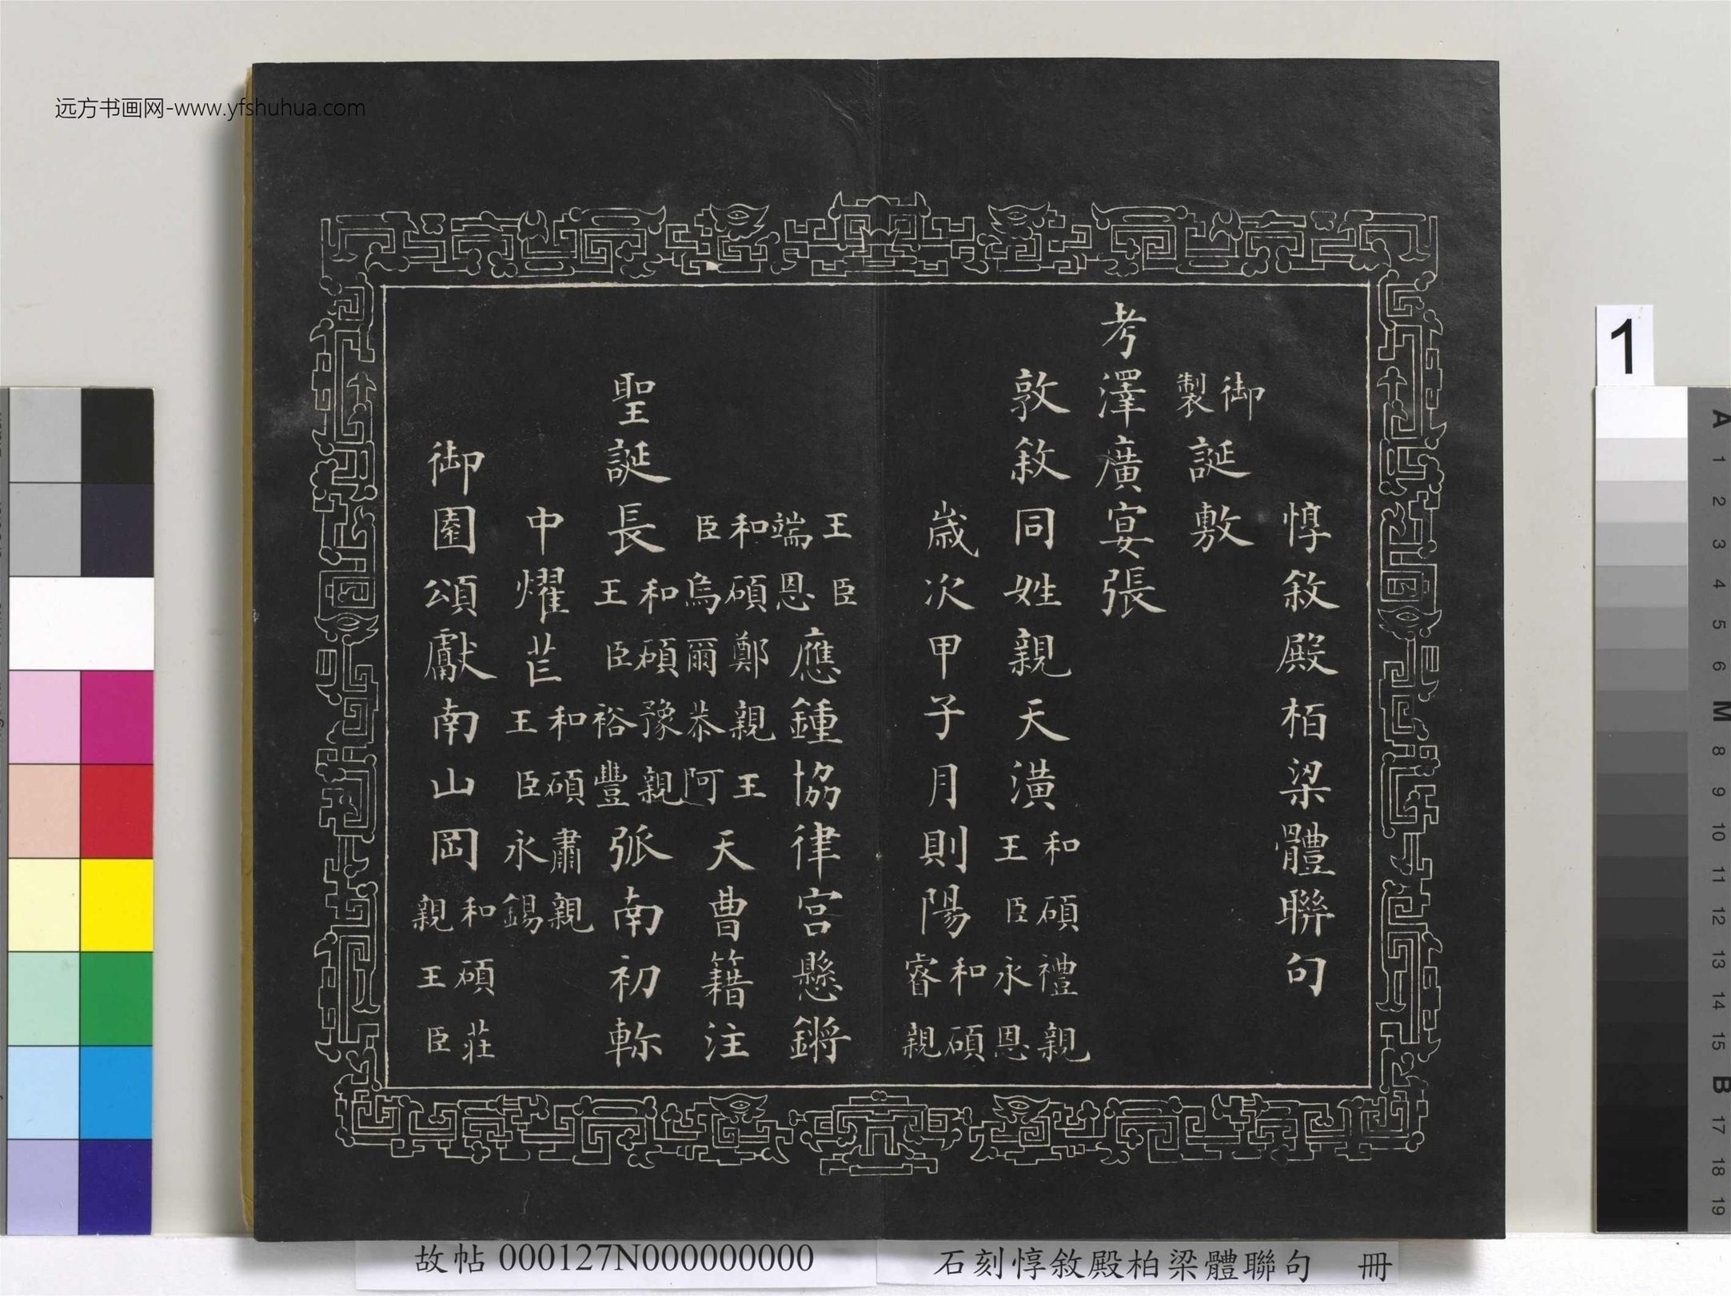 惇敘殿栢梁體聯句
御製誕敷
考澤廣宴張
敦敘同姓親天潢和碩禮親王臣永恩
歲次甲子月則陽和碩睿親
王臣端恩應鍾協律宮懸鏘
和碩鄭親王臣烏爾恭阿天曹籍注
聖誕長和碩豫親王臣裕豐弧南初軫
中燿芒和碩肅親王臣永錫
御園頌獻南山岡和碩莊親王臣
远方书画网-www.yfshuhua.com
故帖 000127N000000000
石刻惇敘殿柏梁體聯句 冊
1
A
1
2
3
4
5
6
M
8
9
10
11
12
13
14
15
B
17
18
19